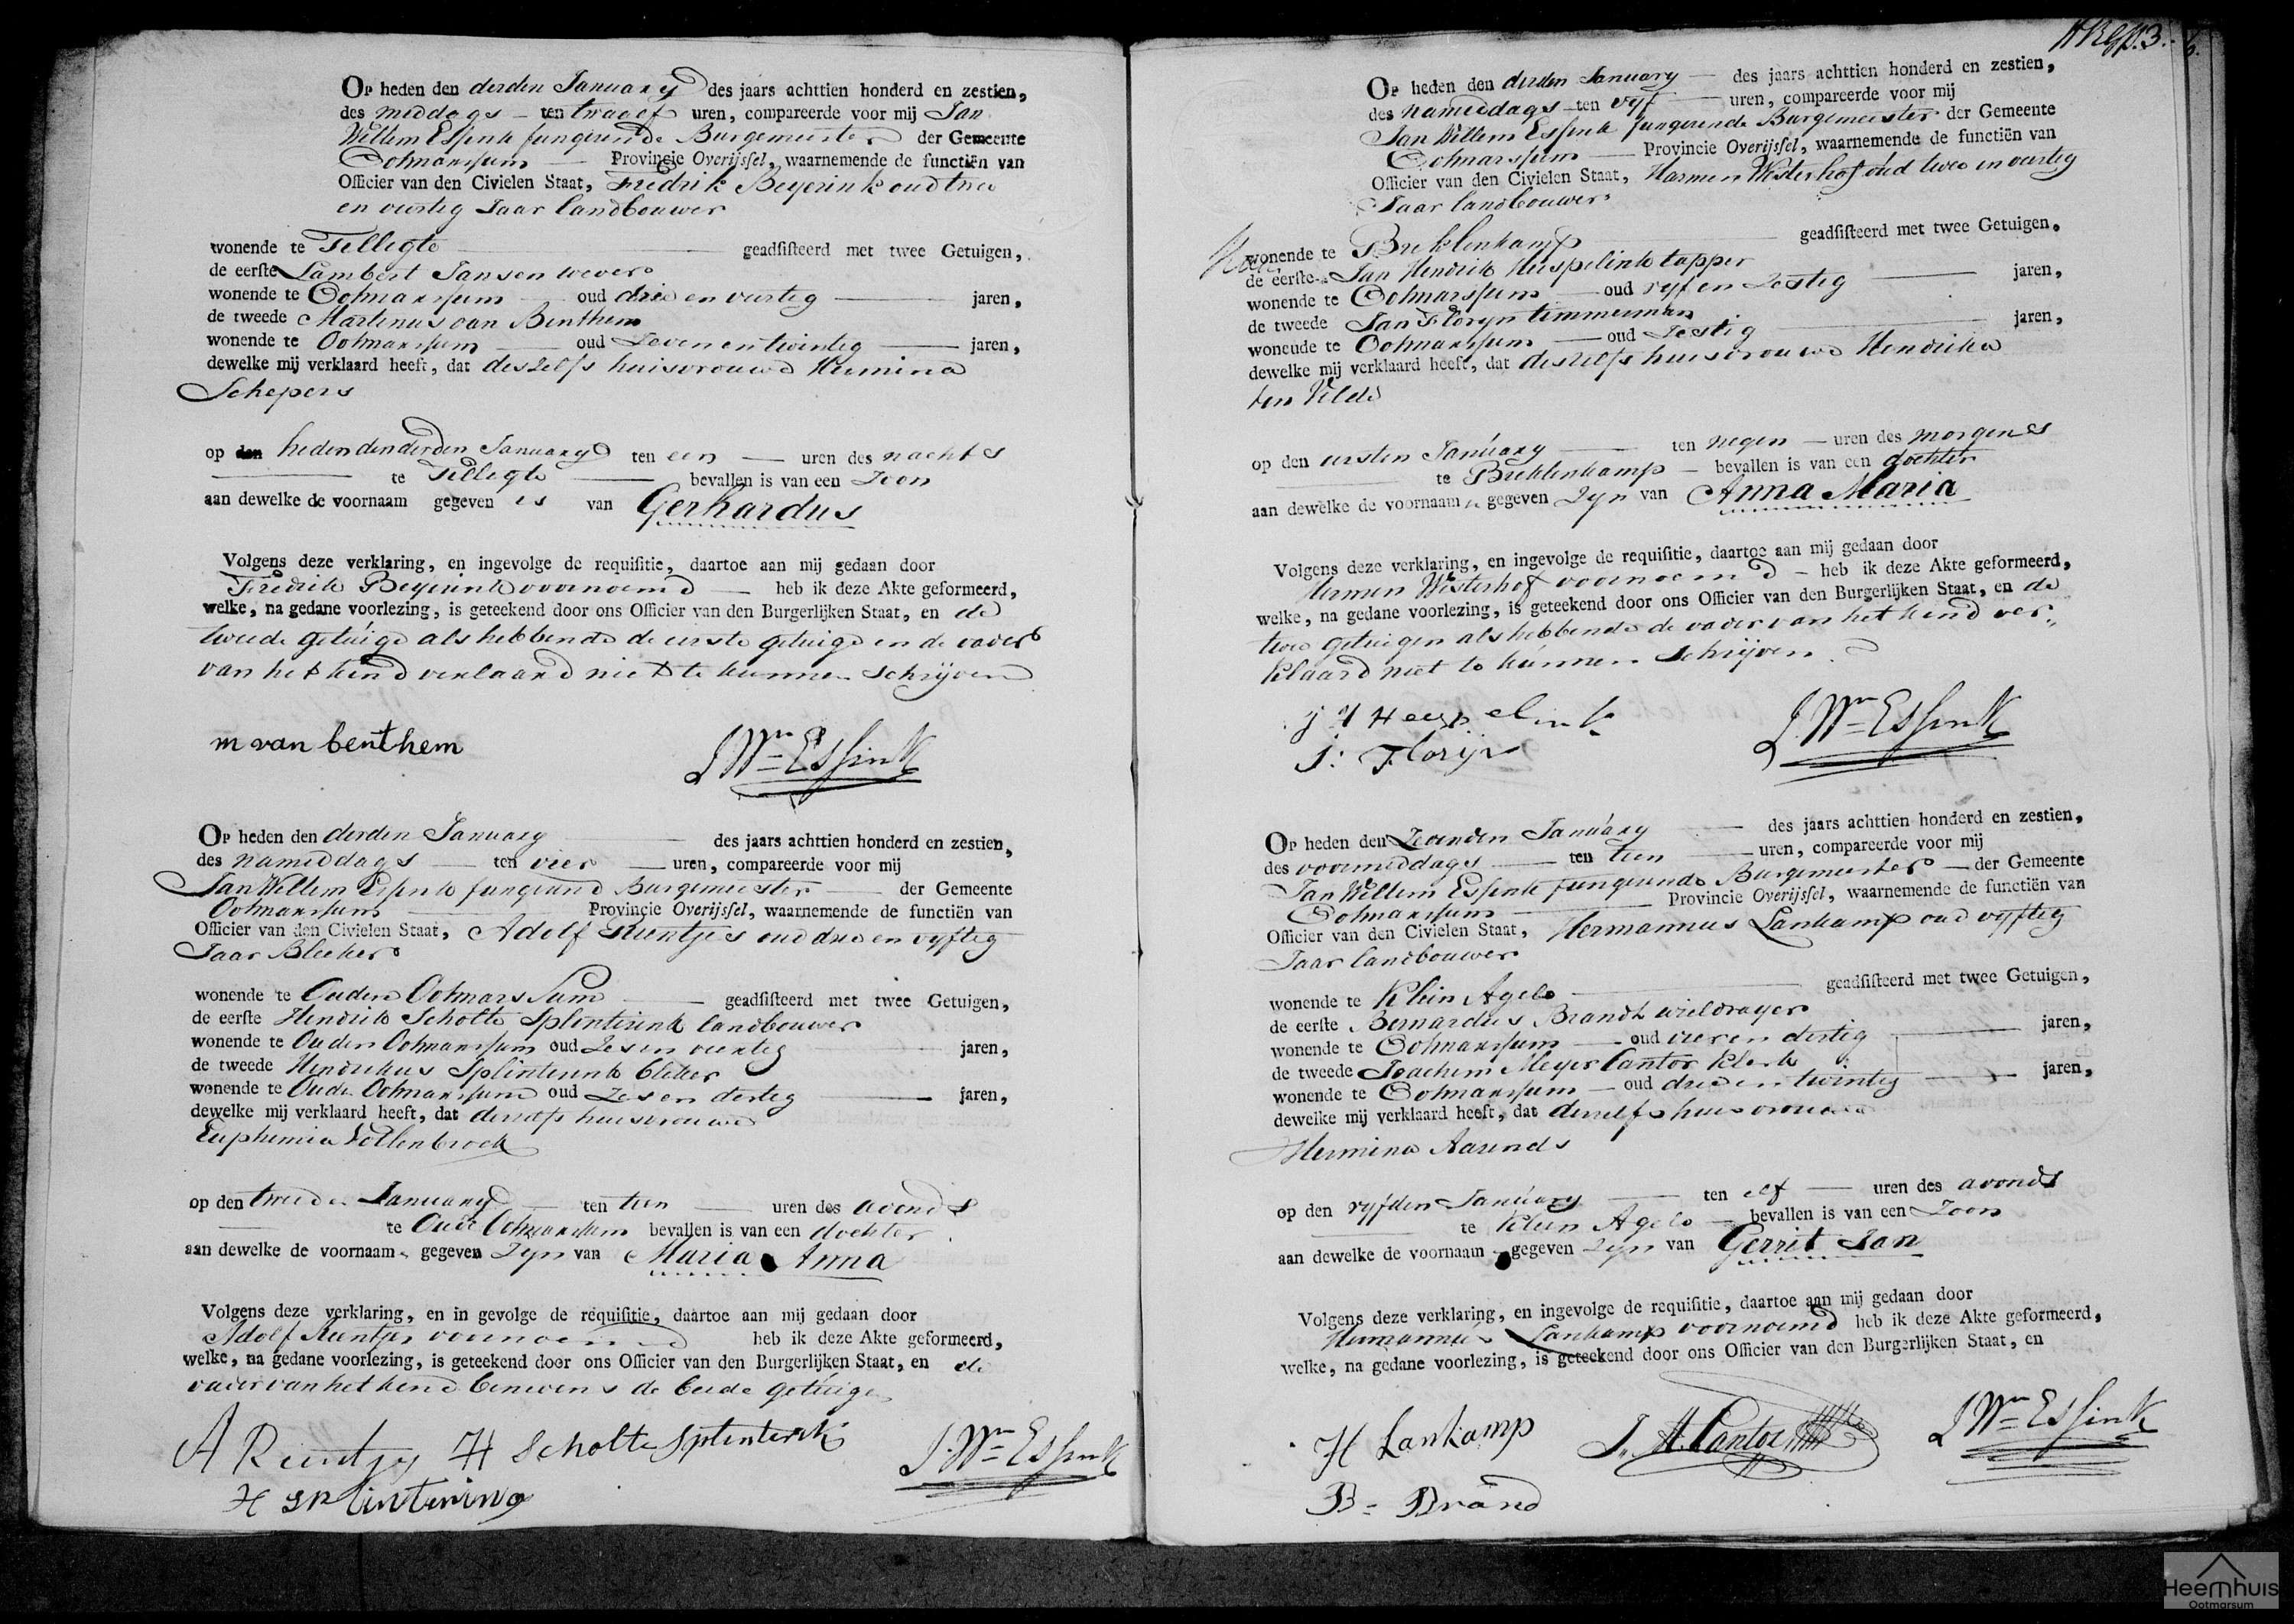 Op heden den derden January des jaars achttien honderd en zestien,
des middags ten twaalf uren, compareerde voor mij Jan
Willem Essink fungerende Burgemeester der Gemeente
Ootmarssum Provincie Overijssel, waarnemende de functiën van
Officier van den Civielen Staat, Fredrik Beyerink oud twee
en veertig Jaar landbouwer
wonende te Tilligte geadsisteerd met twee Getuigen,
de eerste Lambert Jansen wever
wonende te Ootmarssum oud drie en veertig jaren,
de tweede Martinus van Benthem
wonende te Ootmarssum oud Zeven en twintig jaren,
dewelke mij verklaard heeft, dat deszelfs huisvrouwe Hermina
Schepers
op den heden den derden January ten een uren des nachts
te Tilligte bevallen is van een Zoon
aan dewelke de voornaam gegeven is van Gerhardus
Volgens deze verklaring, en ingevolge de requisitie, daartoe aan mij gedaan door
Fredrik Beyerink voornoemd heb ik deze Akte geformeerd,
welke, na gedane voorlezing, is geteekend door ons Officier van den Burgerlijken Staat, en de
tweede getuige als hebbende de eerste getuige en de vader
van het kind verklaard niet te kunnen schrijven
m van benthem J Wm Essink
Op heden den derden January des jaars achttien honderd en zestien,
des nameddags ten vier uren, compareerde voor mij
Jan Willem Essink fungerend Burgemeester der Gemeente
Ootmarssum Provincie Overijssel, waarnemende de functiën van
Officier van den Civielen Staat, Adolf Reuntjes oud drie en vyftig
Jaar Bleeker
wonende te Ouden Ootmarssum geadsisteerd met twee Getuigen,
de eerste Hendrik Scholte Splinterink landbouwer
wonende te Ouden Ootmarssum oud Zes en veertig jaren,
de tweede Hendrikus Splinterink bleker
wonende te Oude Ootmarssum oud Zes en dertig jaren,
dewelke mij verklaard heeft, dat derzelfs huisvrouwe
Euphemia Vollenbroek
op den tweeden January ten tien uren des avonds
te Oude Ootmarssum bevallen is van een dochter
aan dewelke de voornaam gegeven Zyn van Maria Anna
Volgens deze verklaring, en in gevolge de requisitie, daartoe aan mij gedaan door
Adolf Reuntjes voornoemd heb ik deze Akte geformeerd,
welke, na gedane voorlezing, is geteekend door ons Officier van den Burgerlijken Staat, en de
vader van het kind benevens de beide getuigen
A Reuntjes H Scholte Splinterink J. Wm Essink
H splinterink
Op heden den derden January des jaars achttien honderd en zestien,
des nameddags ten vyf uren, compareerde voor mij
Jan Willem Essink fungerende Burgemeester der Gemeente
Ootmarssum Provincie Overijssel, waarnemende de functiën van
Officier van den Civielen Staat, Harmen Westerhof oud twee en veertig
Jaar landbouwer
wonende te Breklenkamp geadsisteerd met twee Getuigen,
de eerste Jan Hendrik Heupelink tapper
wonende te Ootmarssum oud vyf en Zestig jaren,
de tweede Jan Floryn timmerman
wonende te Ootmarssum oud Zestig jaren,
dewelke mij verklaard heeft, dat deszelfs huisvrouwe Hendrika
ten Velde
op den eersten January ten negen uren des morgens
te Breklenkamp bevallen is van een dochter
aan dewelke de voornaam n gegeven Zyn van Anna Maria
Volgens deze verklaring, en ingevolge de requisitie, daartoe aan mij gedaan door
Hermen Westerhof voornoemd heb ik deze Akte geformeerd,
welke, na gedane voorlezing, is geteekend door ons Officier van den Burgerlijken Staat, en de
twee getuigen als hebbende de vader van het kind ver
klaard niet te kunnen schrijven
j H Heupelink J. Wm Essink
j: Florijn
Op heden den Zevenden January des jaars achttien honderd en zestien,
des voormiddags ten tien uren, compareerde voor mij
Jan Willem Essink fungerende Burgemeester der Gemeente
Ootmarssum Provincie Overijssel, waarnemende de functiën van
Officier van den Civielen Staat, Hermannus Lankamp oud vyftig
Jaar landbouwer
wonende te Klein Agelo geadsisteerd met twee Getuigen,
de eerste Bernardus Brandt wieldrayer
wonende te Ootmarssum oud vier en dertig jaren,
de tweede Joachem Meyer Cantor klerk
wonende te Ootmarssum oud drie en twintig jaren,
dewelke mij verklaard heeft, dat derzelfs huisvrouwe
Hermina Aarends
op den vyfden January ten elf uren des avonds
te Klein Agelo bevallen is van een Zoon
aan dewelke de voornaam gegeven Zyn van Gerrit Jan
Volgens deze verklaring, en ingevolge de requisitie, daartoe aan mij gedaan door
Hermannus Lankamp voornoemd heb ik deze Akte geformeerd,
welke, na gedane voorlezing, is geteekend door ons Officier van den Burgerlijken Staat, en
H Lankamp J. M. Cantor J Wm Essink
B = Brand
Heemhuis
Ootmarsum